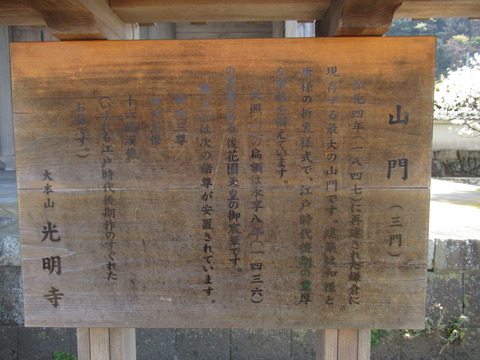 山門(三門)
弘化四年(一八四七)に再建された鎌倉に
現存する最大の山門です。建築は和様と
唐様の折衷様式で、江戸時代後期の重厚
な風格を備えています。
の扁額は永享八年(一四三六)
の後花園天皇の御宸筆です。
は次の諸尊が安置されています。
三尊
十六羅漢像
(いずれも江戸時代後期作のすぐれた
お像です。)
大本山 光明寺